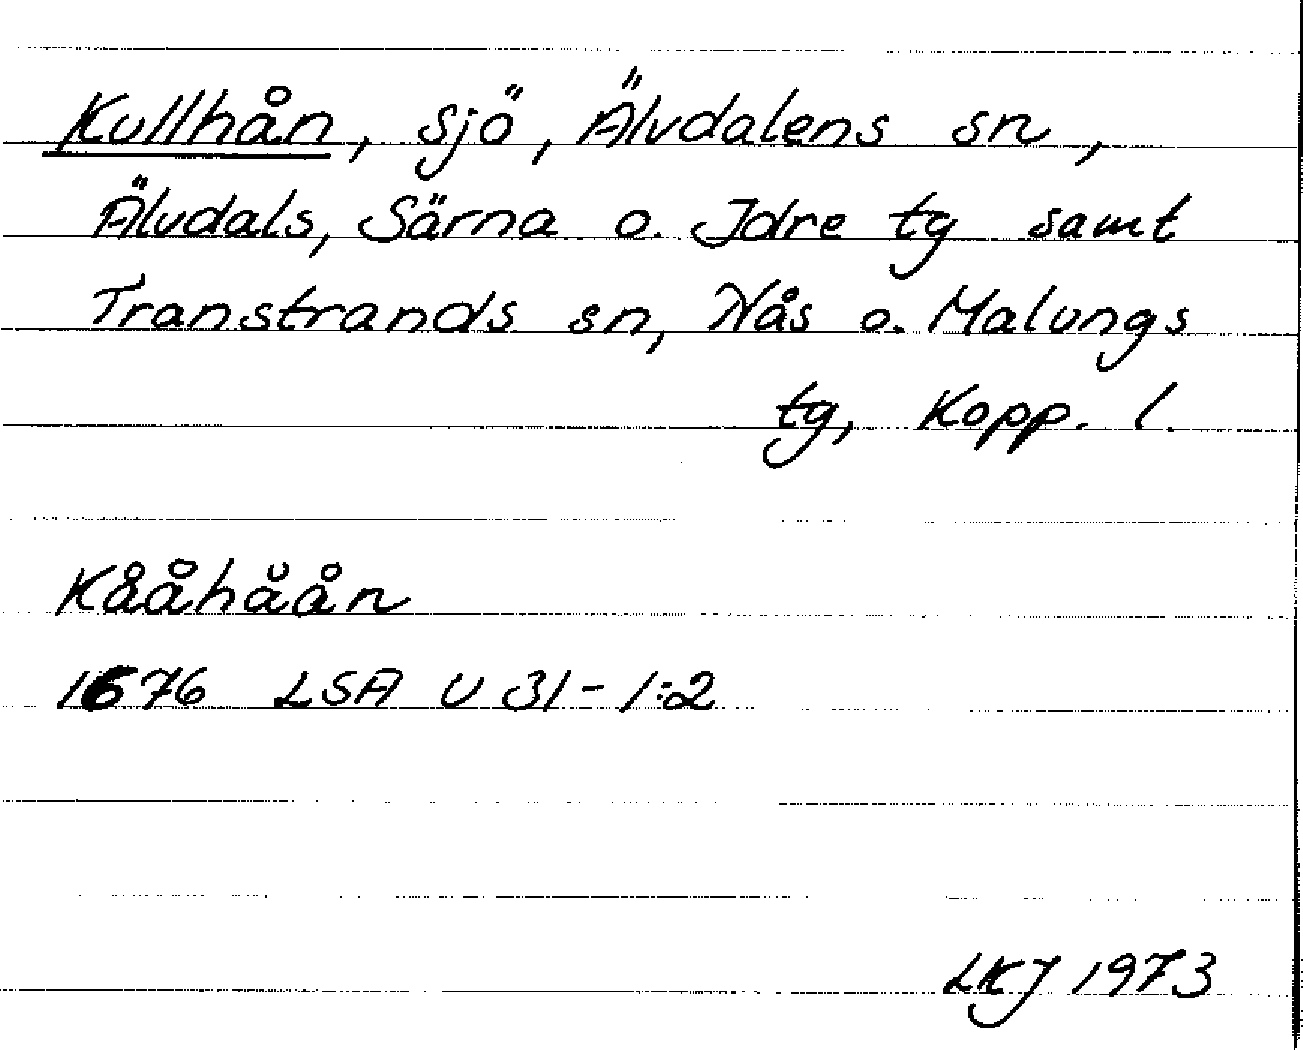 Kullhån, sjö, Älvdalens sn,
Älvdals, Särna o. Idre tg samt
Transtrands sn, Nås o. Malungs
tg, Kopp. l.
Kååhåån
1676 LSA U 31-1:2
LKJ 1973